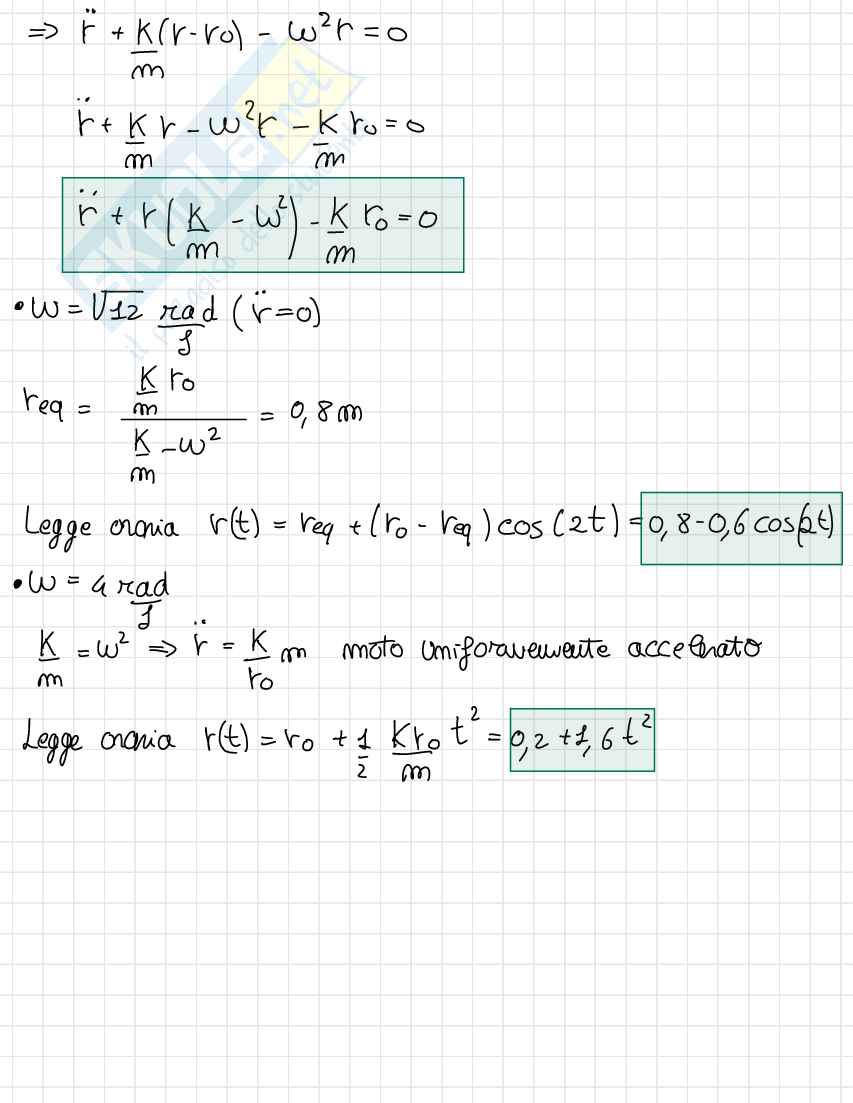 ⇒ r̈ + K/m (r - r0) - ω²r = 0
r̈ + K/m r - ω²r - K/m r0 = 0
r̈ + r(K/m - ω²) - K/m r0 = 0
• ω = √12 rad/s (r̈ = 0)
req = (K/m r0)/(K/m - ω²) = 0,8 m
Legge oraria r(t) = req + (r0 - req) cos(2t) = 0,8 - 0,6 cos(2t)
• ω = 4 rad/s
K/m = ω² ⇒ r̈ = K/r0 m moto uniformemente accelerato
Legge oraria r(t) = r0 + 1/2 Kr0/m t² = 0,2 + 1,6 t²
SKUOLA.net